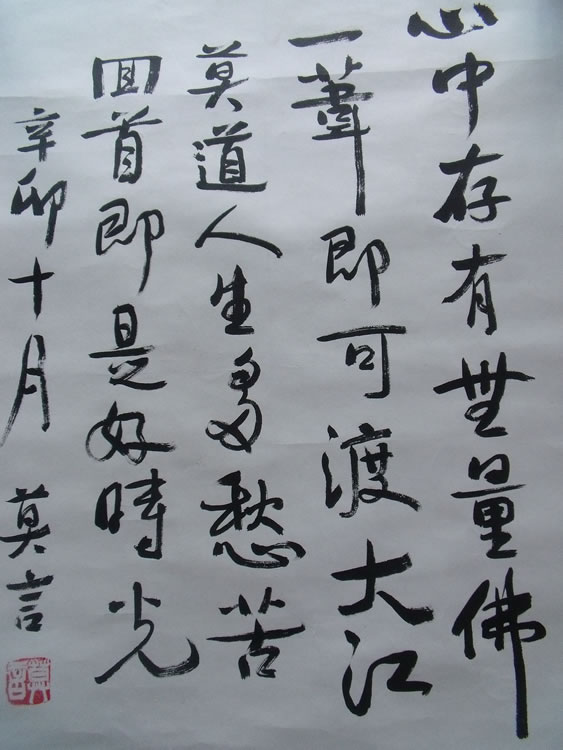 心中存有無量佛
一葦即可渡大江
莫道人生多愁苦
回首即是好時光
辛卯十月 莫言
莫言